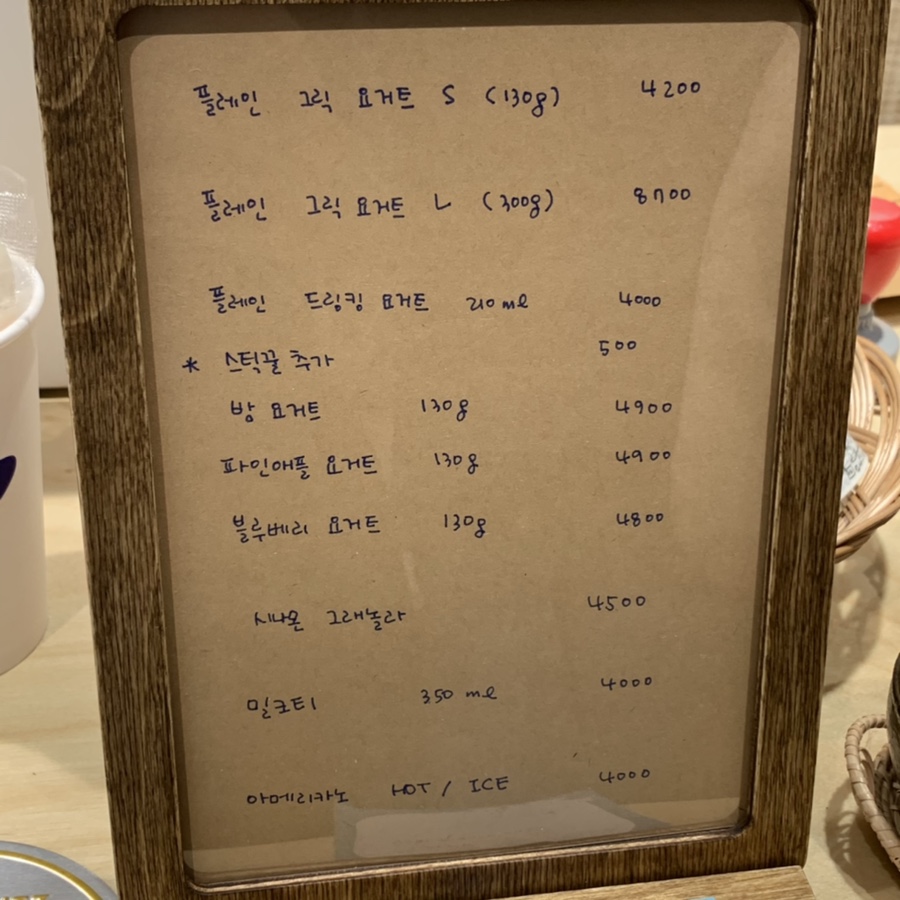 플레인 그릭 요거트 S (130g) 4200
플레인 그릭 요거트 L (300g) 8700
플레인 드링킹 요거트 210ml 4000
* 스틱꿀 추가 500
밤 요거트 130g 4900
파인애플 요거트 130g 4900
블루베리 요거트 130g 4800
시나몬 그래놀라 4500
밀크티 350 ml 4000
아메리카노 HOT / ICE 4000